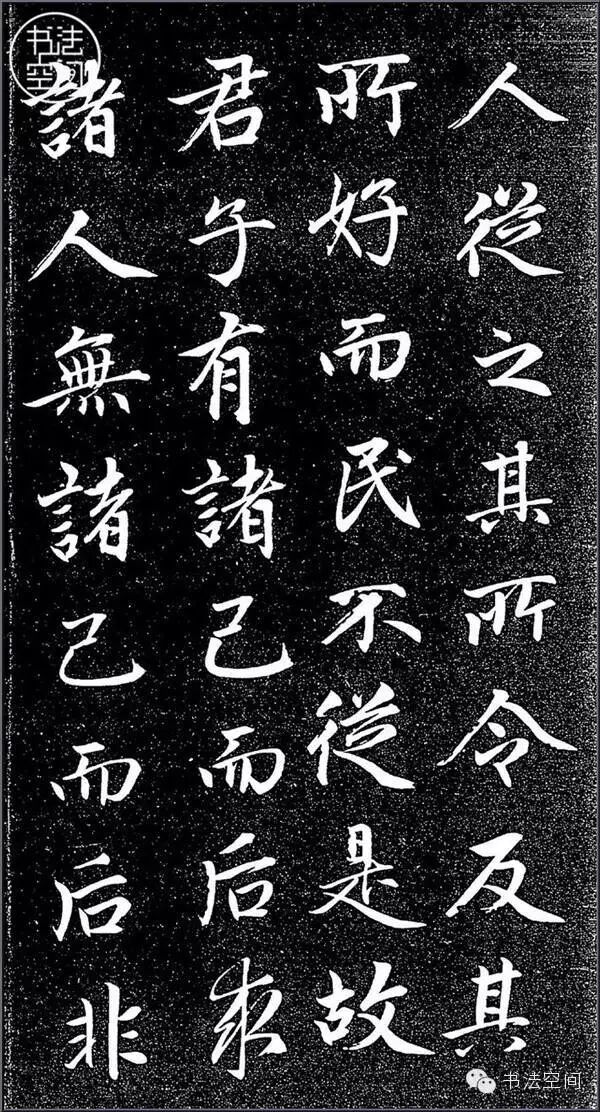 人從之其所令反其
所好而民不從是故
君子有諸己而后求
諸人無諸己而后非
书法空间
书法空间